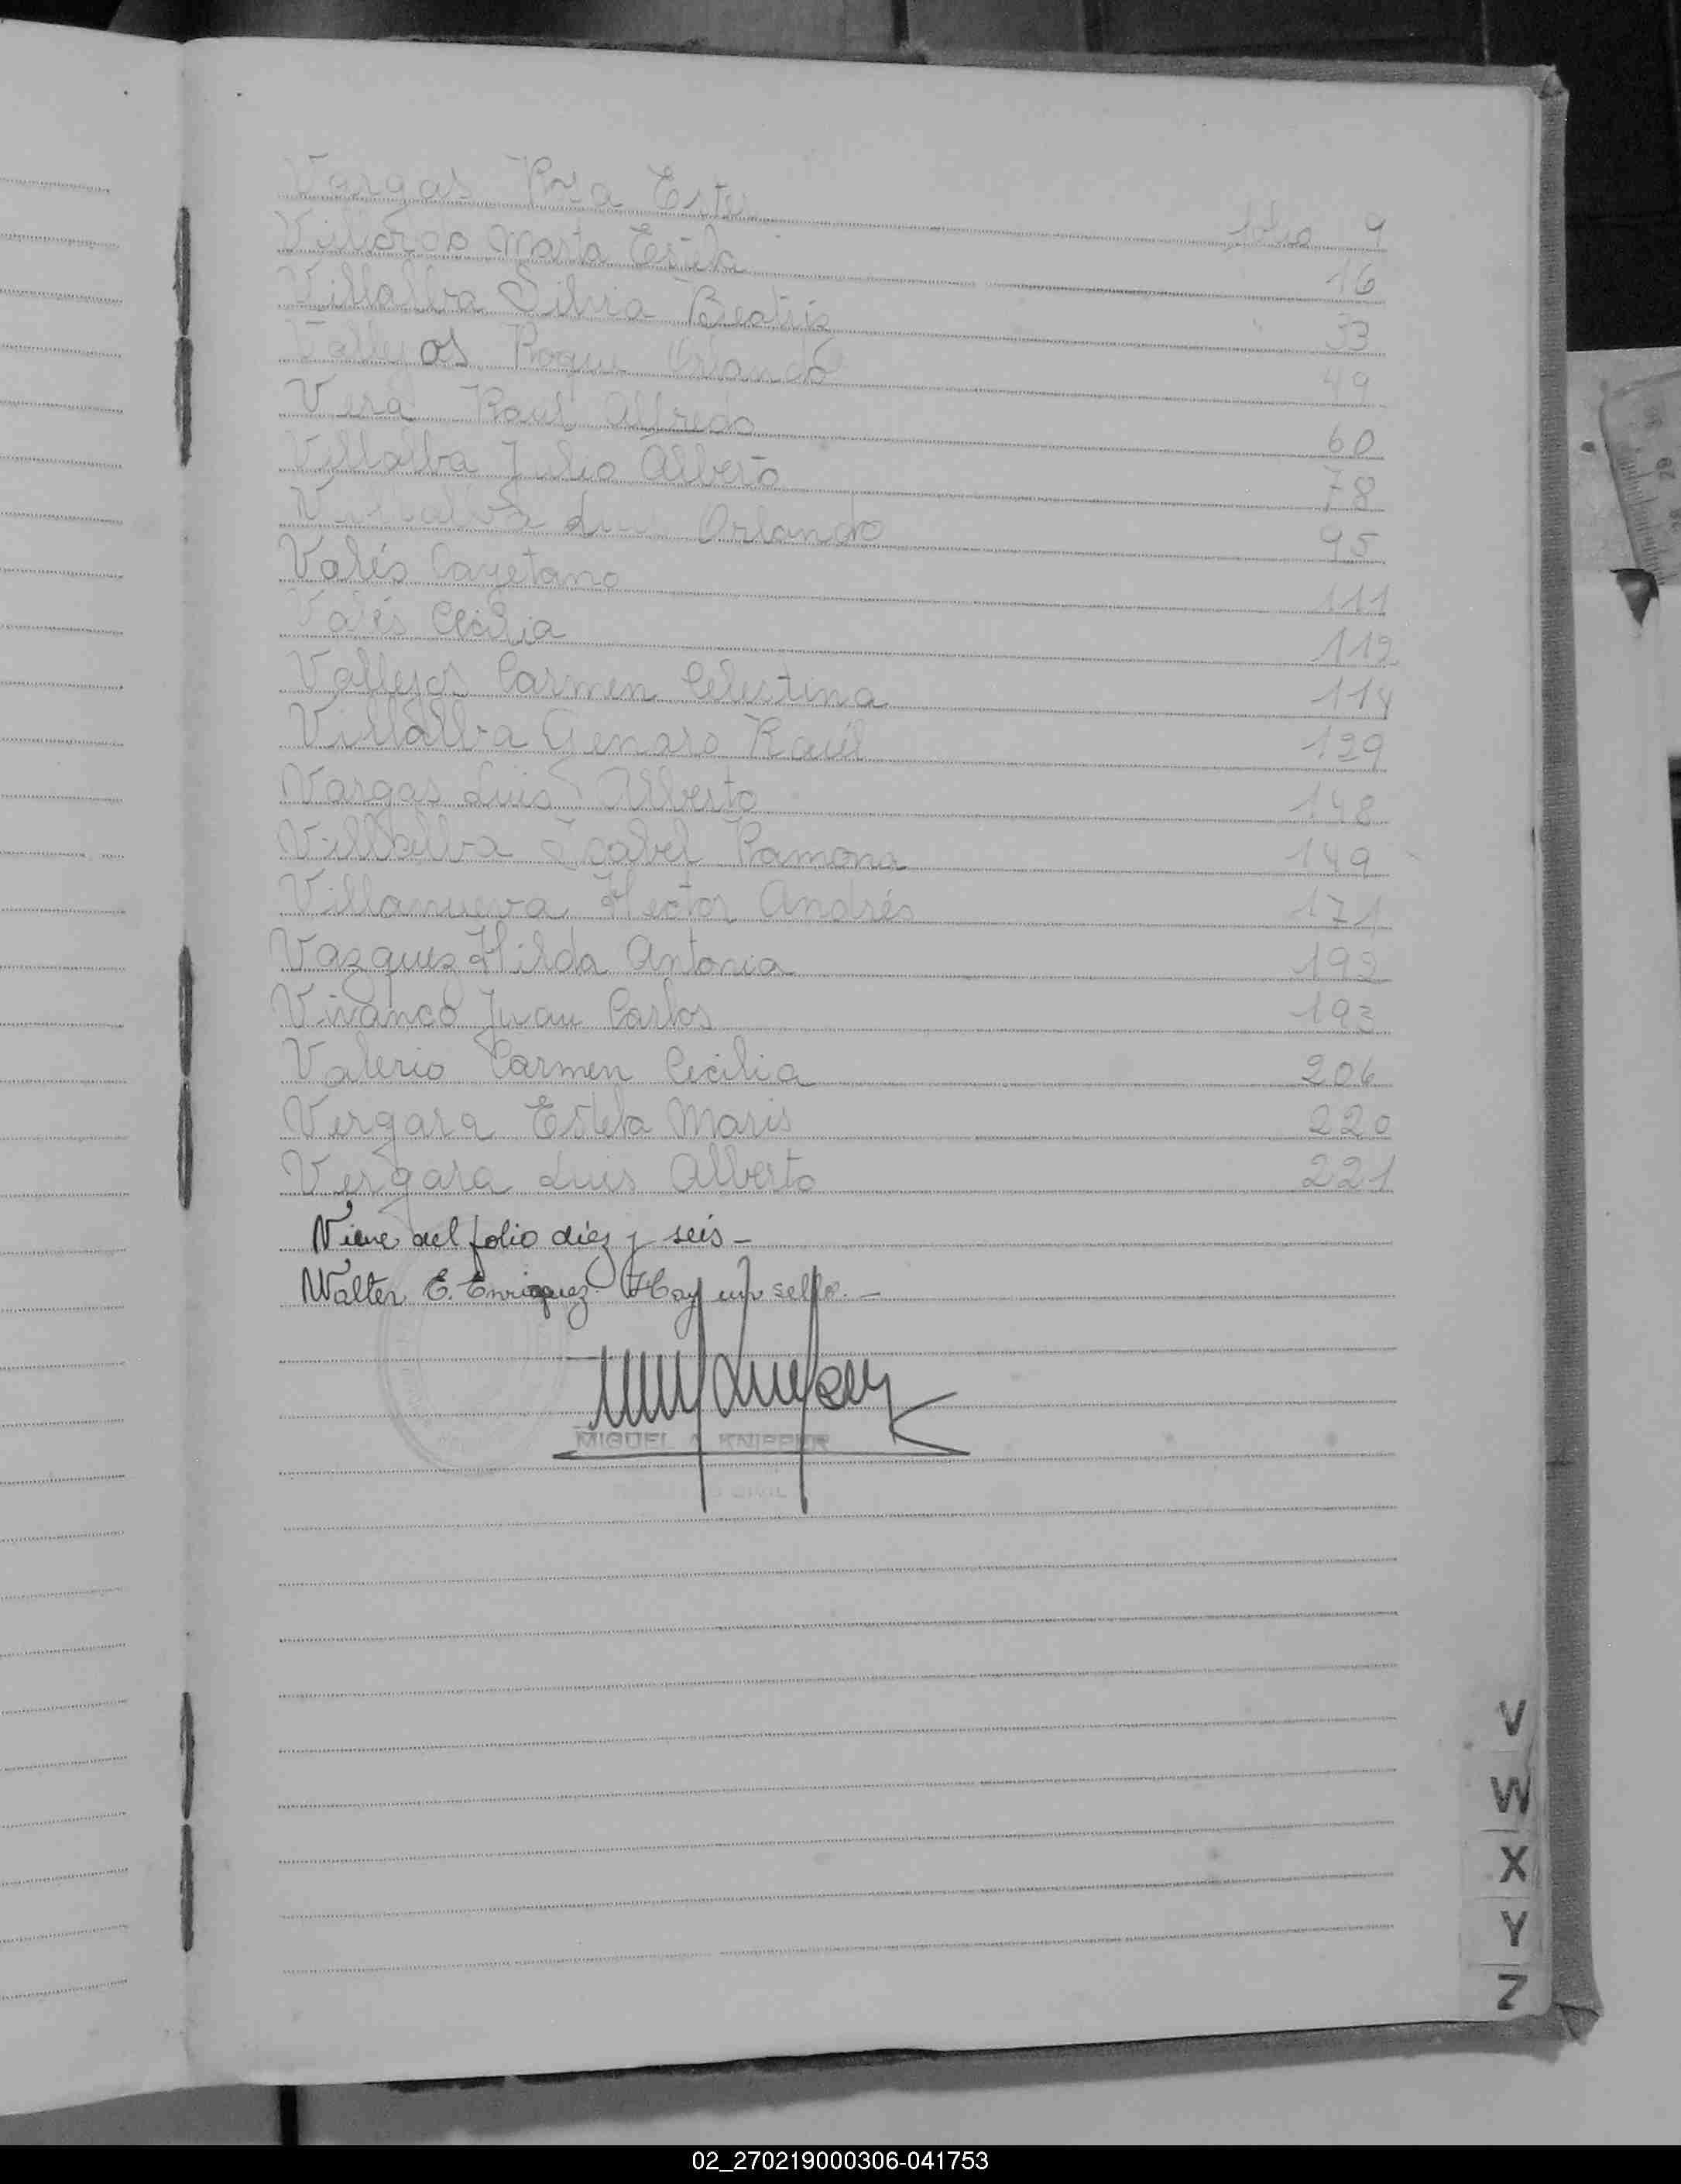 Vargas Rosa Ester folio 9
Villordo Marta Estela 16
Villalba Silvia Beatriz 33
Vallejos Roque Orlando 49
Vera Raul Alfredo 60
Villalba Julio Alberto 78
Villalba Luis Orlando 95
Valés Cayetano 111
Valés Cecilia 112
Vallejos Carmen Celestina 114
Villalba Genaro Raúl 129
Vargas Luis Alberto 148
Villalba Isabel Ramona 149
Villanueva Hector Andrés 171
Vazquez Hilda Antonia 192
Vivanco Juan Carlos 193
Valerio Carmen Cecilia 206
Vergara Estela Maris 220
Vergara Luis Alberto 221
Viene del folio diéz y seis -
Walter E. Enriquez. Hay un sello. -
MIGUEL A. KNIPPER
CIVIL
V
W
X
Y
Z
02_270219000306-041753